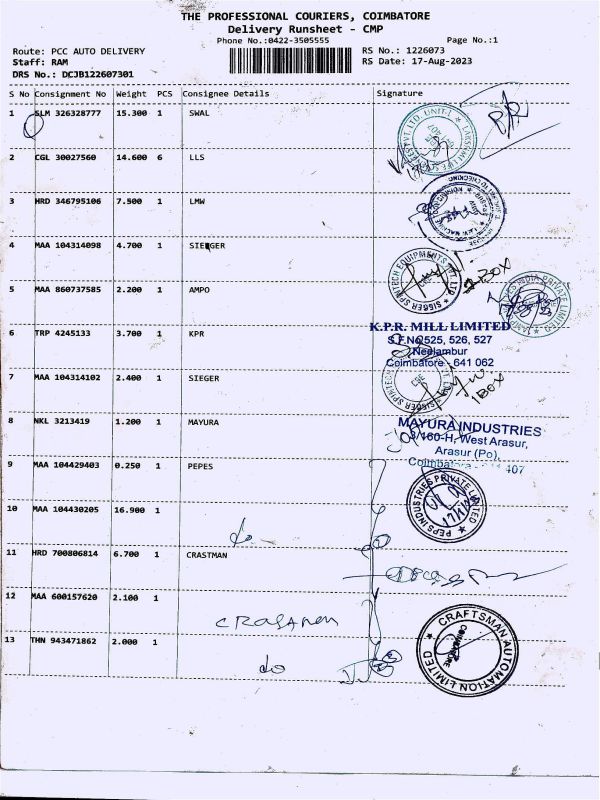 THE PROFESSIONAL COURIERS, COIMBATORE
Delivery Runsheet - CMP
Phone No.:0422-3505555
Page No.:1
Route: PCC AUTO DELIVERY
RS No.: 1226073
Staff: RAM
RS Date: 17-Aug-2023
DRS No.: DCJB122607301
S No Consignment No Weight PCS Consignee Details Signature
1 SLM 326328777 15.300 1 SWAL
2 CGL 30027560 14.600 6 LLS
3 HRD 346795106 7.500 1 LMW
4 MAA 104314098 4.700 1 SIEGER
2 BOX
5 MAA 860737585 2.200 1 AMPO
K.P.R. MILL LIMITED
6 TRP 4245133 3.700 1 KPR
S.F.No.525, 526, 527
Neelambur
Coimbatore - 641 062
7 MAA 104314102 2.400 1 SIEGER
1 BOX
8 NKL 3213419 1.200 1 MAYURA
MAYURA INDUSTRIES
3/160-H, West Arasur,
Arasur (Po),
Coimbatore - 641 407
9 MAA 104429403 0.250 1 PEPES
PEPS INDUSTRIES PRIVATE LIMITED
10 MAA 104430205 16.900 1
do
11 HRD 700806814 6.700 1 CRASTMAN
12 MAA 600157620 2.100 1
CRAFTSMAN AUTOMATION LIMITED
COIMBATORE
13 THN 943471862 2.000 1
do